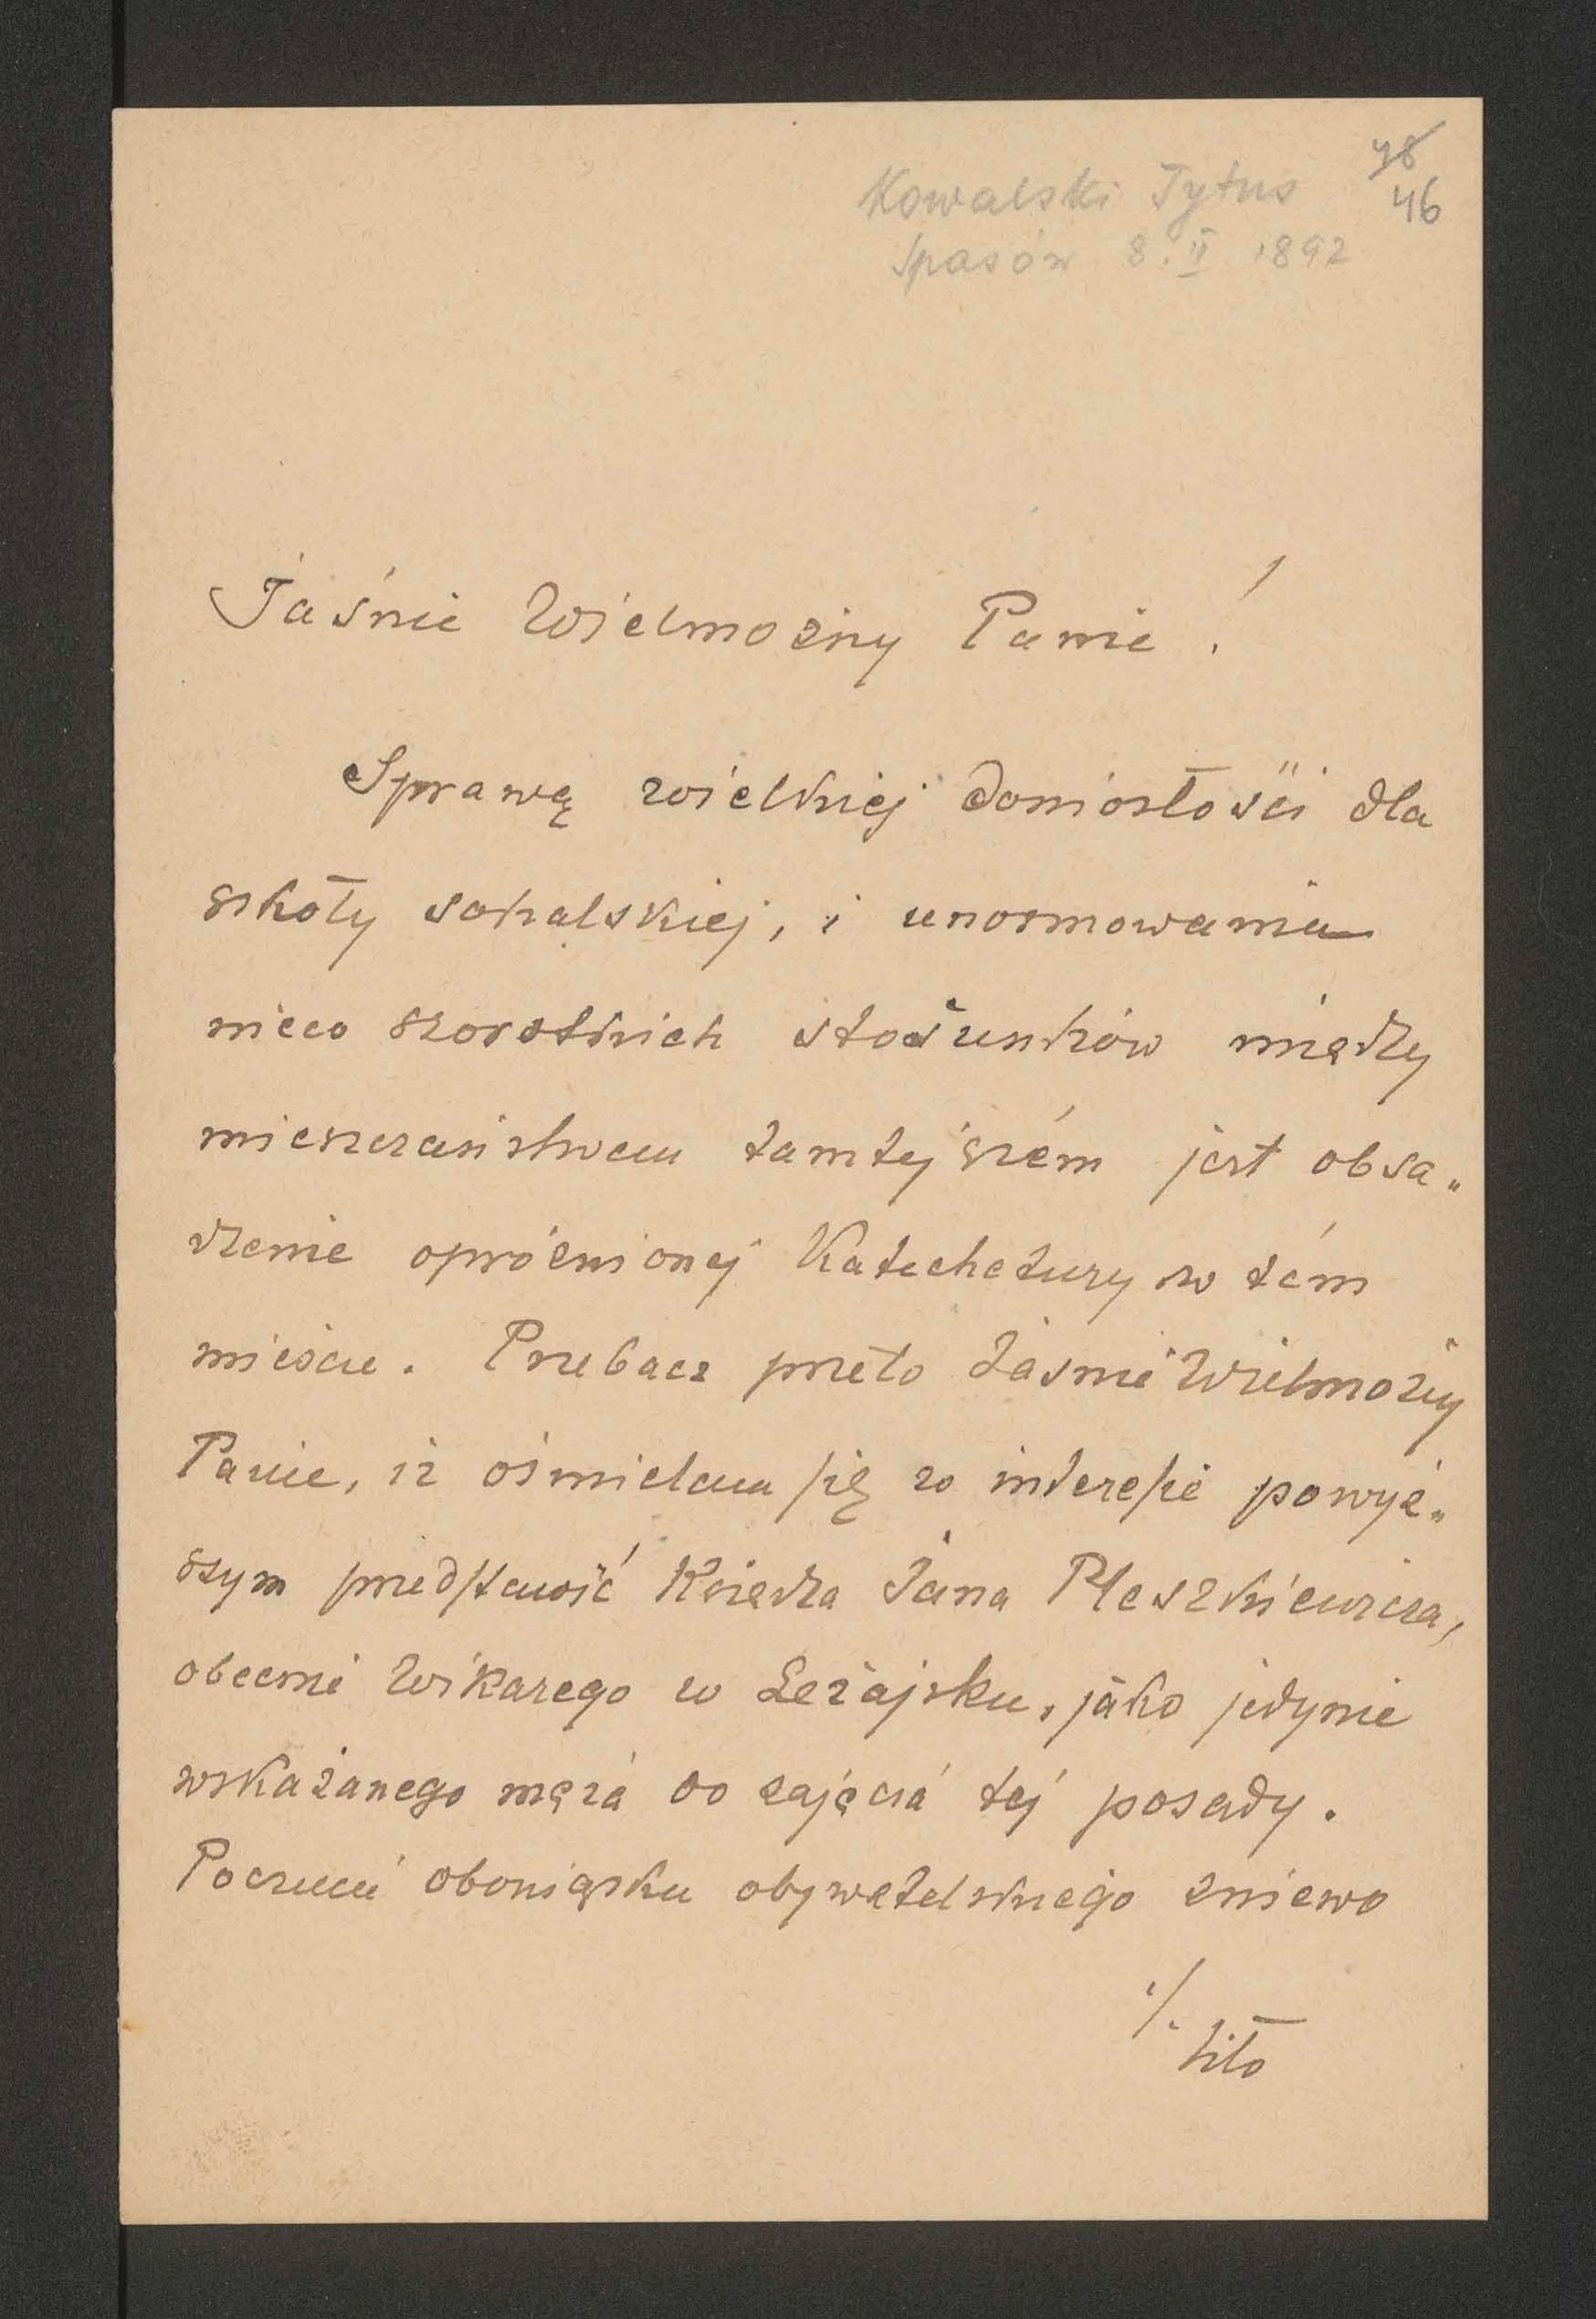 Kowalski Tytus
48
46
Spasów 8. II 1892
Jaśnie Wielmożny Panie!
Sprawę wielkiej doniosłości dla
szkoły sokalskiej, i unormowania
nieco szorstkich stosunków między
mieszczaństwem tamtejszém jest obsa„
dzenie opróżnionej Katechetury w tém
mieście. Przebacz przeto Jaśnie Wielmożny
Panie, iż ośmielam się w interesie powyż„
szym przedstawić Księdza Jana Pleszkiewicza,
obecnie Wikarego w Leżajsku, jako jedynie
wskazanego męża do zajęcia tej posady.
Poczucie obowiązku obywatelskiego zniewo
./.
liło